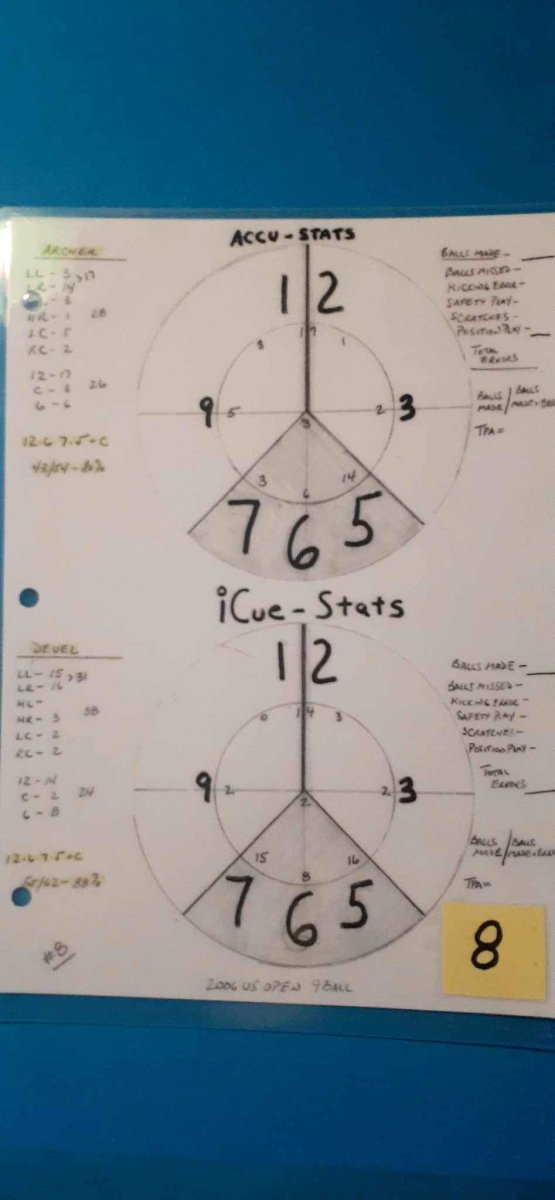 ACCU-STATS
ARCHER
LL - 3 >17
LR - 14
HR - 1 28
LC - 5
RC - 2
12-17
C - 3 26
6 - 6
12.6.7.5+C
43/54 - 80%
1 2
3 17 1
9 5 3 2 3
3 6 14
7 6 5
BALLS MADE -
BALLS MISSED -
KICKING ERROR -
SAFETY PLAY -
SCRATCHES -
POSITION PLAY -
TOTAL
ERRORS
BALLS / BALLS
MADE / MADE +
TPA=
iCue-Stats
DEUEL
LL - 15 >31
LR - 16
HL -
HR - 3 38
LC - 2
RC - 2
12-14
C - 2 24
6 - 8
12.6.7.5+C
55/62 - 88%
#8
1 2
0 14 3
9 2 2 2 3
15 8 16
7 6 5
BALLS MADE -
BALLS MISSED -
KICKING ERROR -
SAFETY PLAY -
SCRATCHES -
POSITION PLAY -
TOTAL
ERRORS
BALLS / BALLS
MADE / MADE +
TPA=
8
2006 US OPEN 9 BALL